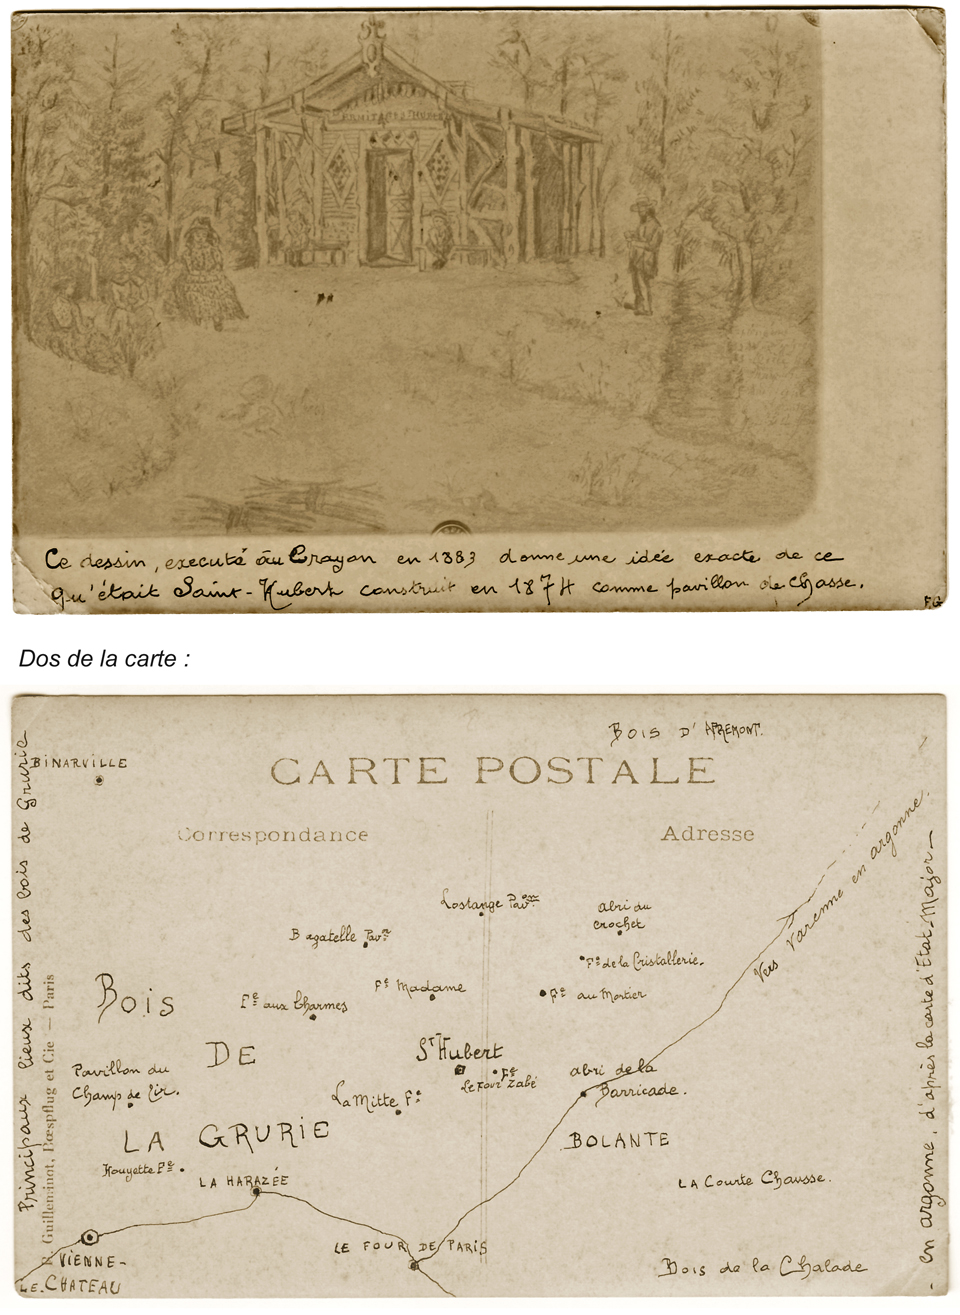 St
Ce dessin, executé au Crayon en 1883 donne une idée exacte de ce
qu'était Saint-Hubert construit en 1874 comme pavillon de chasse.
F.G
Dos de la carte :
BOIS D'APREMONT.
BINARVILLE
CARTE POSTALE
Correspondance
Adresse
Vers Varenne en argonne.
Lostange Pavon
abri du
crochet
Bagatelle Pavn
Fne de la Cristallerie.
Fne Madame
Fne aux Charmes
Fne au Mortier
BOIS
DE
LA GRURIE
St Hubert
Le Four Zabé
Fne
abri de la
Barricade.
Pavillon du
Champ de Tir.
La Mitte Fne
BOLANTE
Houyette Fne
LA HARAZÉE
LA Courte Chausse.
LE FOUR DE PARIS
VIENNE-
LE-CHATEAU
Bois de la Chalade
Principaux lieux dits des bois de Grurie
R. Guilleminot, Bœspflug et Cie — Paris
- en argonne, d'après la carte d'Etat-Major -